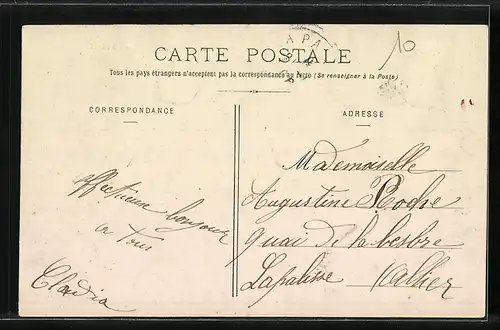 10
APA
CARTE POSTALE
Tous les pays étrangers n'acceptent pas la correspondance au recto (Se renseigner à la Poste)
CORRESPONDANCE
affectueux bonjour
a Tous
Claudia
ADRESSE
Mademoiselle
Augustine Roche
quai de la besbre
Lapalisse Allier